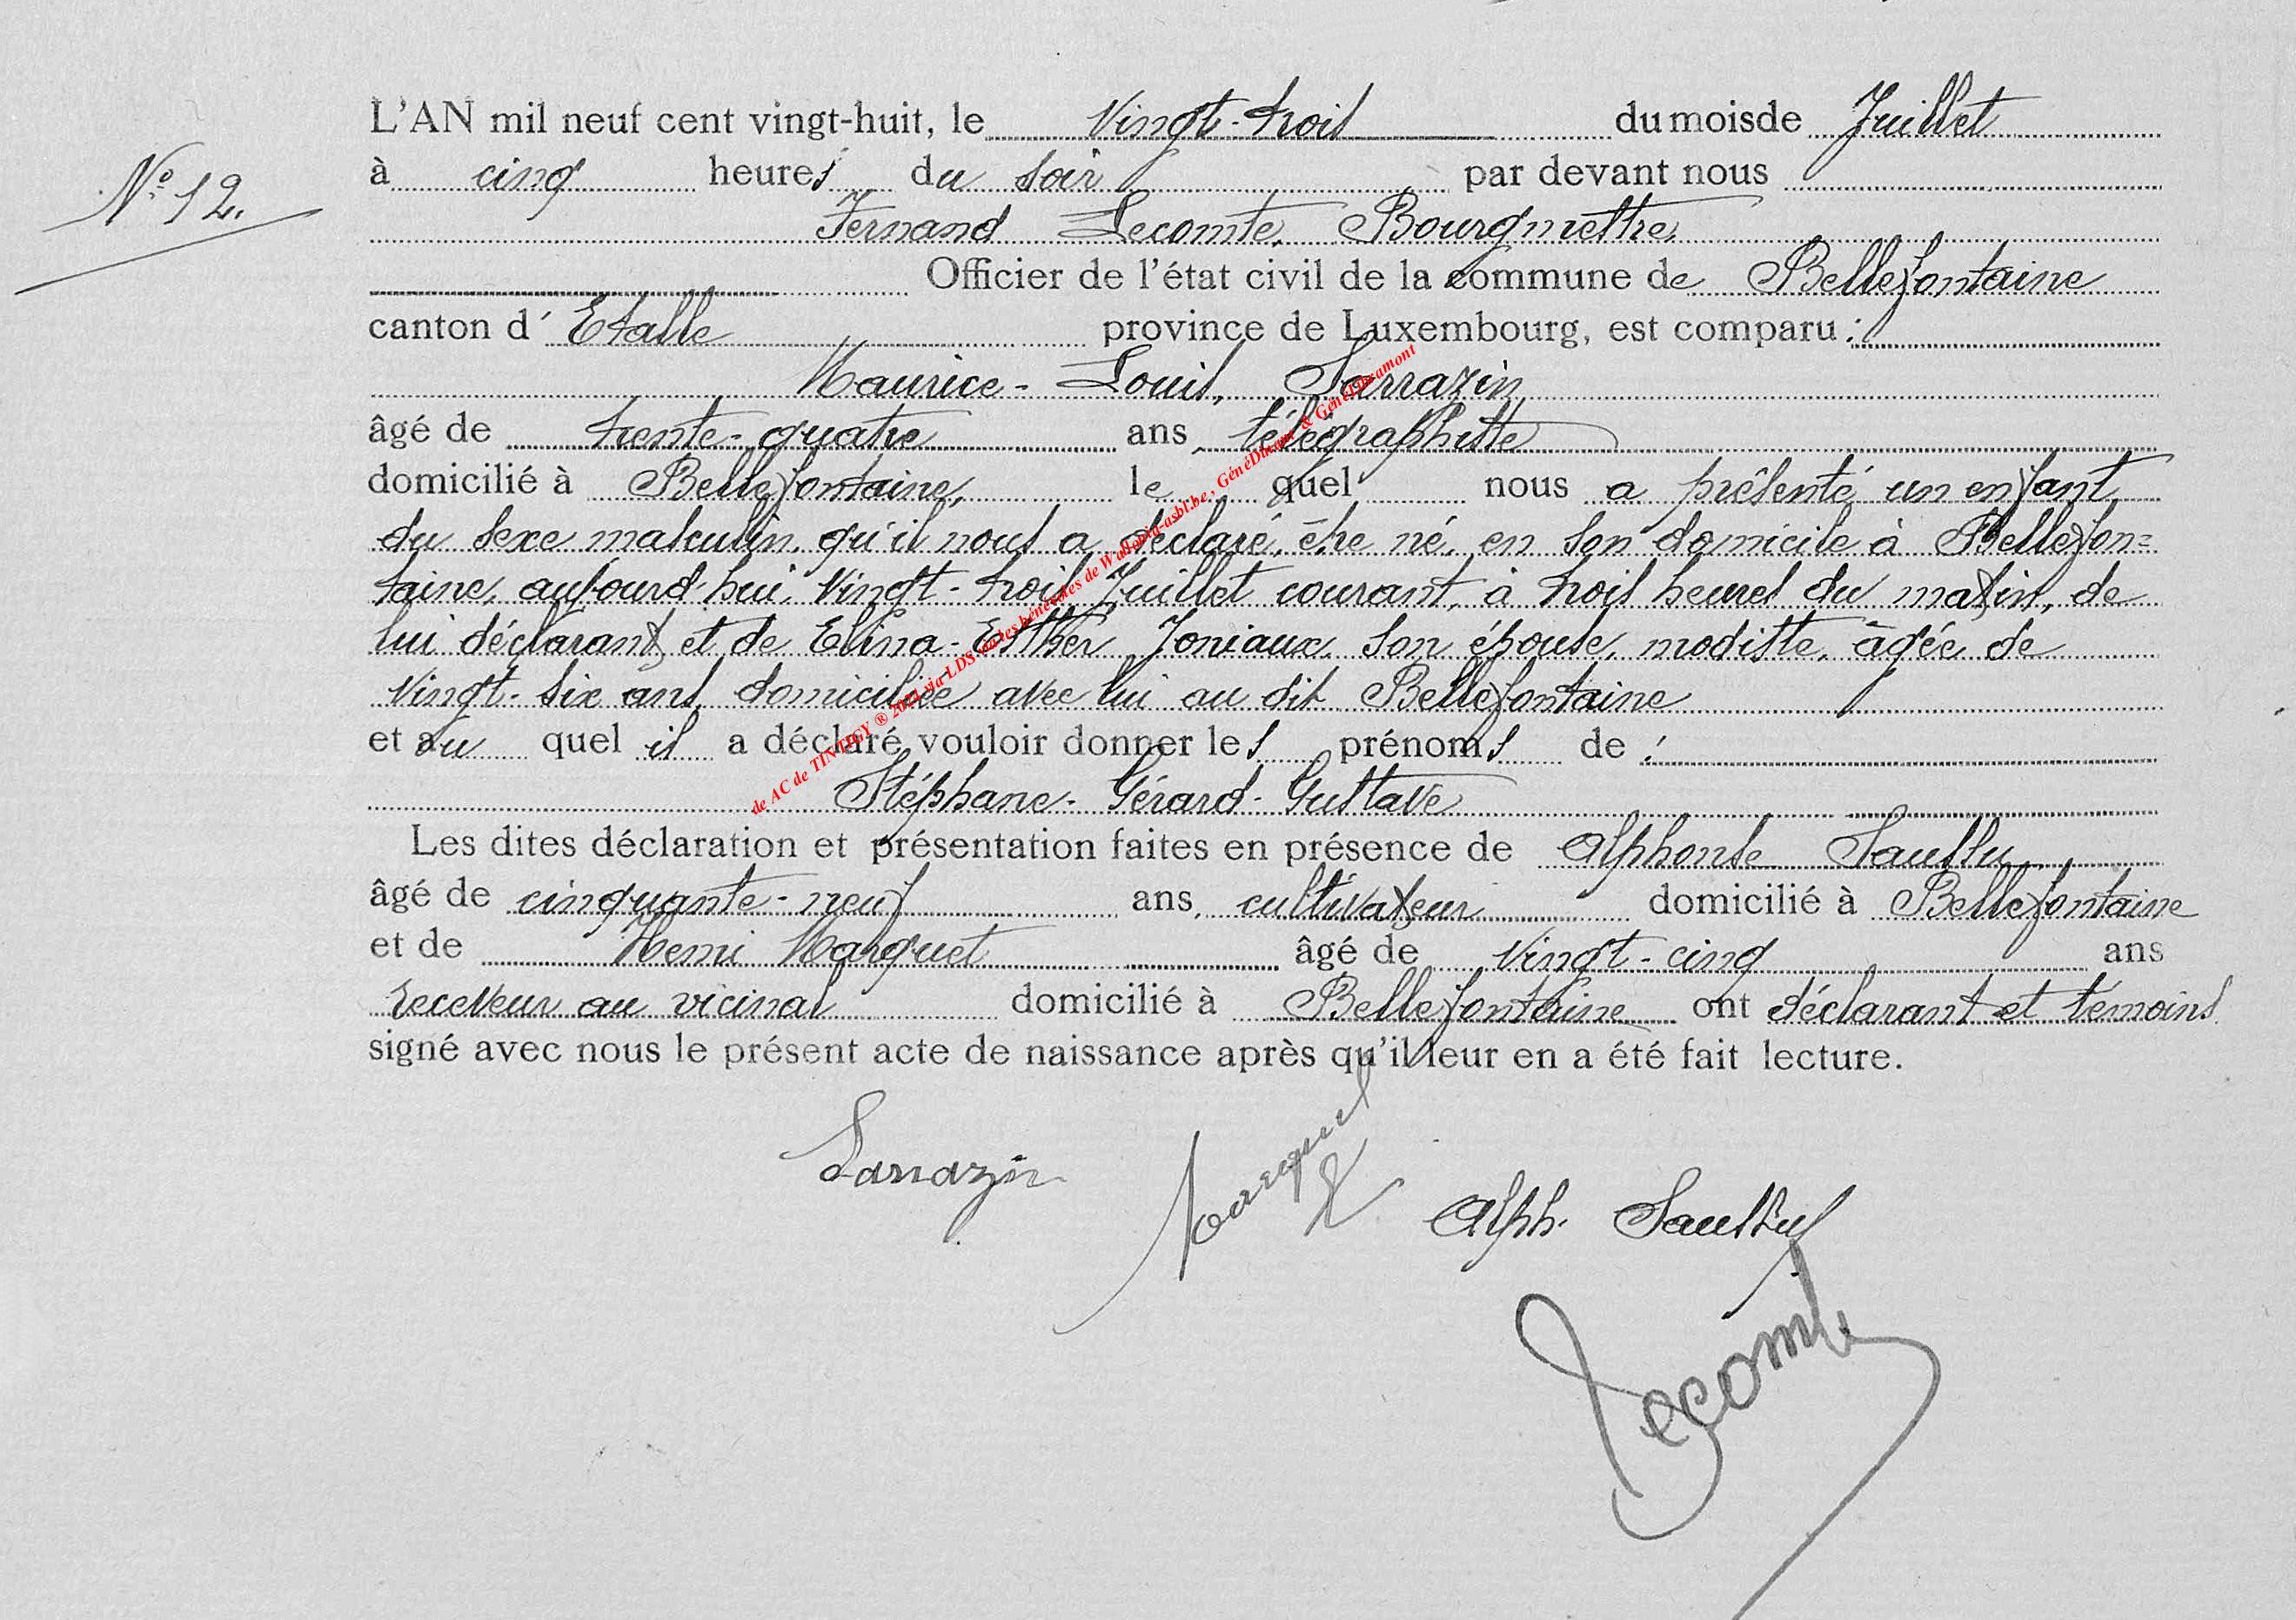 N° 12.
L'AN mil neuf cent vingt-huit, le Vingt-trois du mois de Juillet
à cinq heures du soir par devant nous
Fernand Lecomte, Bourgmestre,
Officier de l'état civil de la commune de Bellefontaine
canton d'Etalle province de Luxembourg, est comparu :
Maurice-Louis, Sarrazin
âgé de trente-quatre ans, télégraphiste
domicilié à Bellefontaine, lequel nous a présenté un enfant
du sexe masculin, qu'il nous a déclaré, être né, en son domicile à Bellefon=
taine, aujourd'hui, Vingt-trois Juillet courant, à trois heures du matin, de
lui déclarant, et de Elina-Esther Joniaux, son épouse, modiste, âgée de
Vingt-six ans, domiciliée avec lui au dit Bellefontaine
et auquel il a déclaré vouloir donner les prénoms de :
Stéphane-Gérard-Gustave
Les dites déclaration et présentation faites en présence de Alphonse
âgé de cinquante-neuf ans, cultivateur domicilié à Bellefontaine
et de Henri Marquet âgé de Vingt-cinq ans
receveur au vicinal domicilié à Bellefontaine ont déclarant et témoins
signé avec nous le présent acte de naissance après qu'il leur en a été fait lecture.
Sarrazin
Marquet
Alph.
Lecomte
de AC de TINTIGY ® 2024 via LDS par les bénévoles de Wallonia-asbl.be, GénéDinant & GénéLibramont